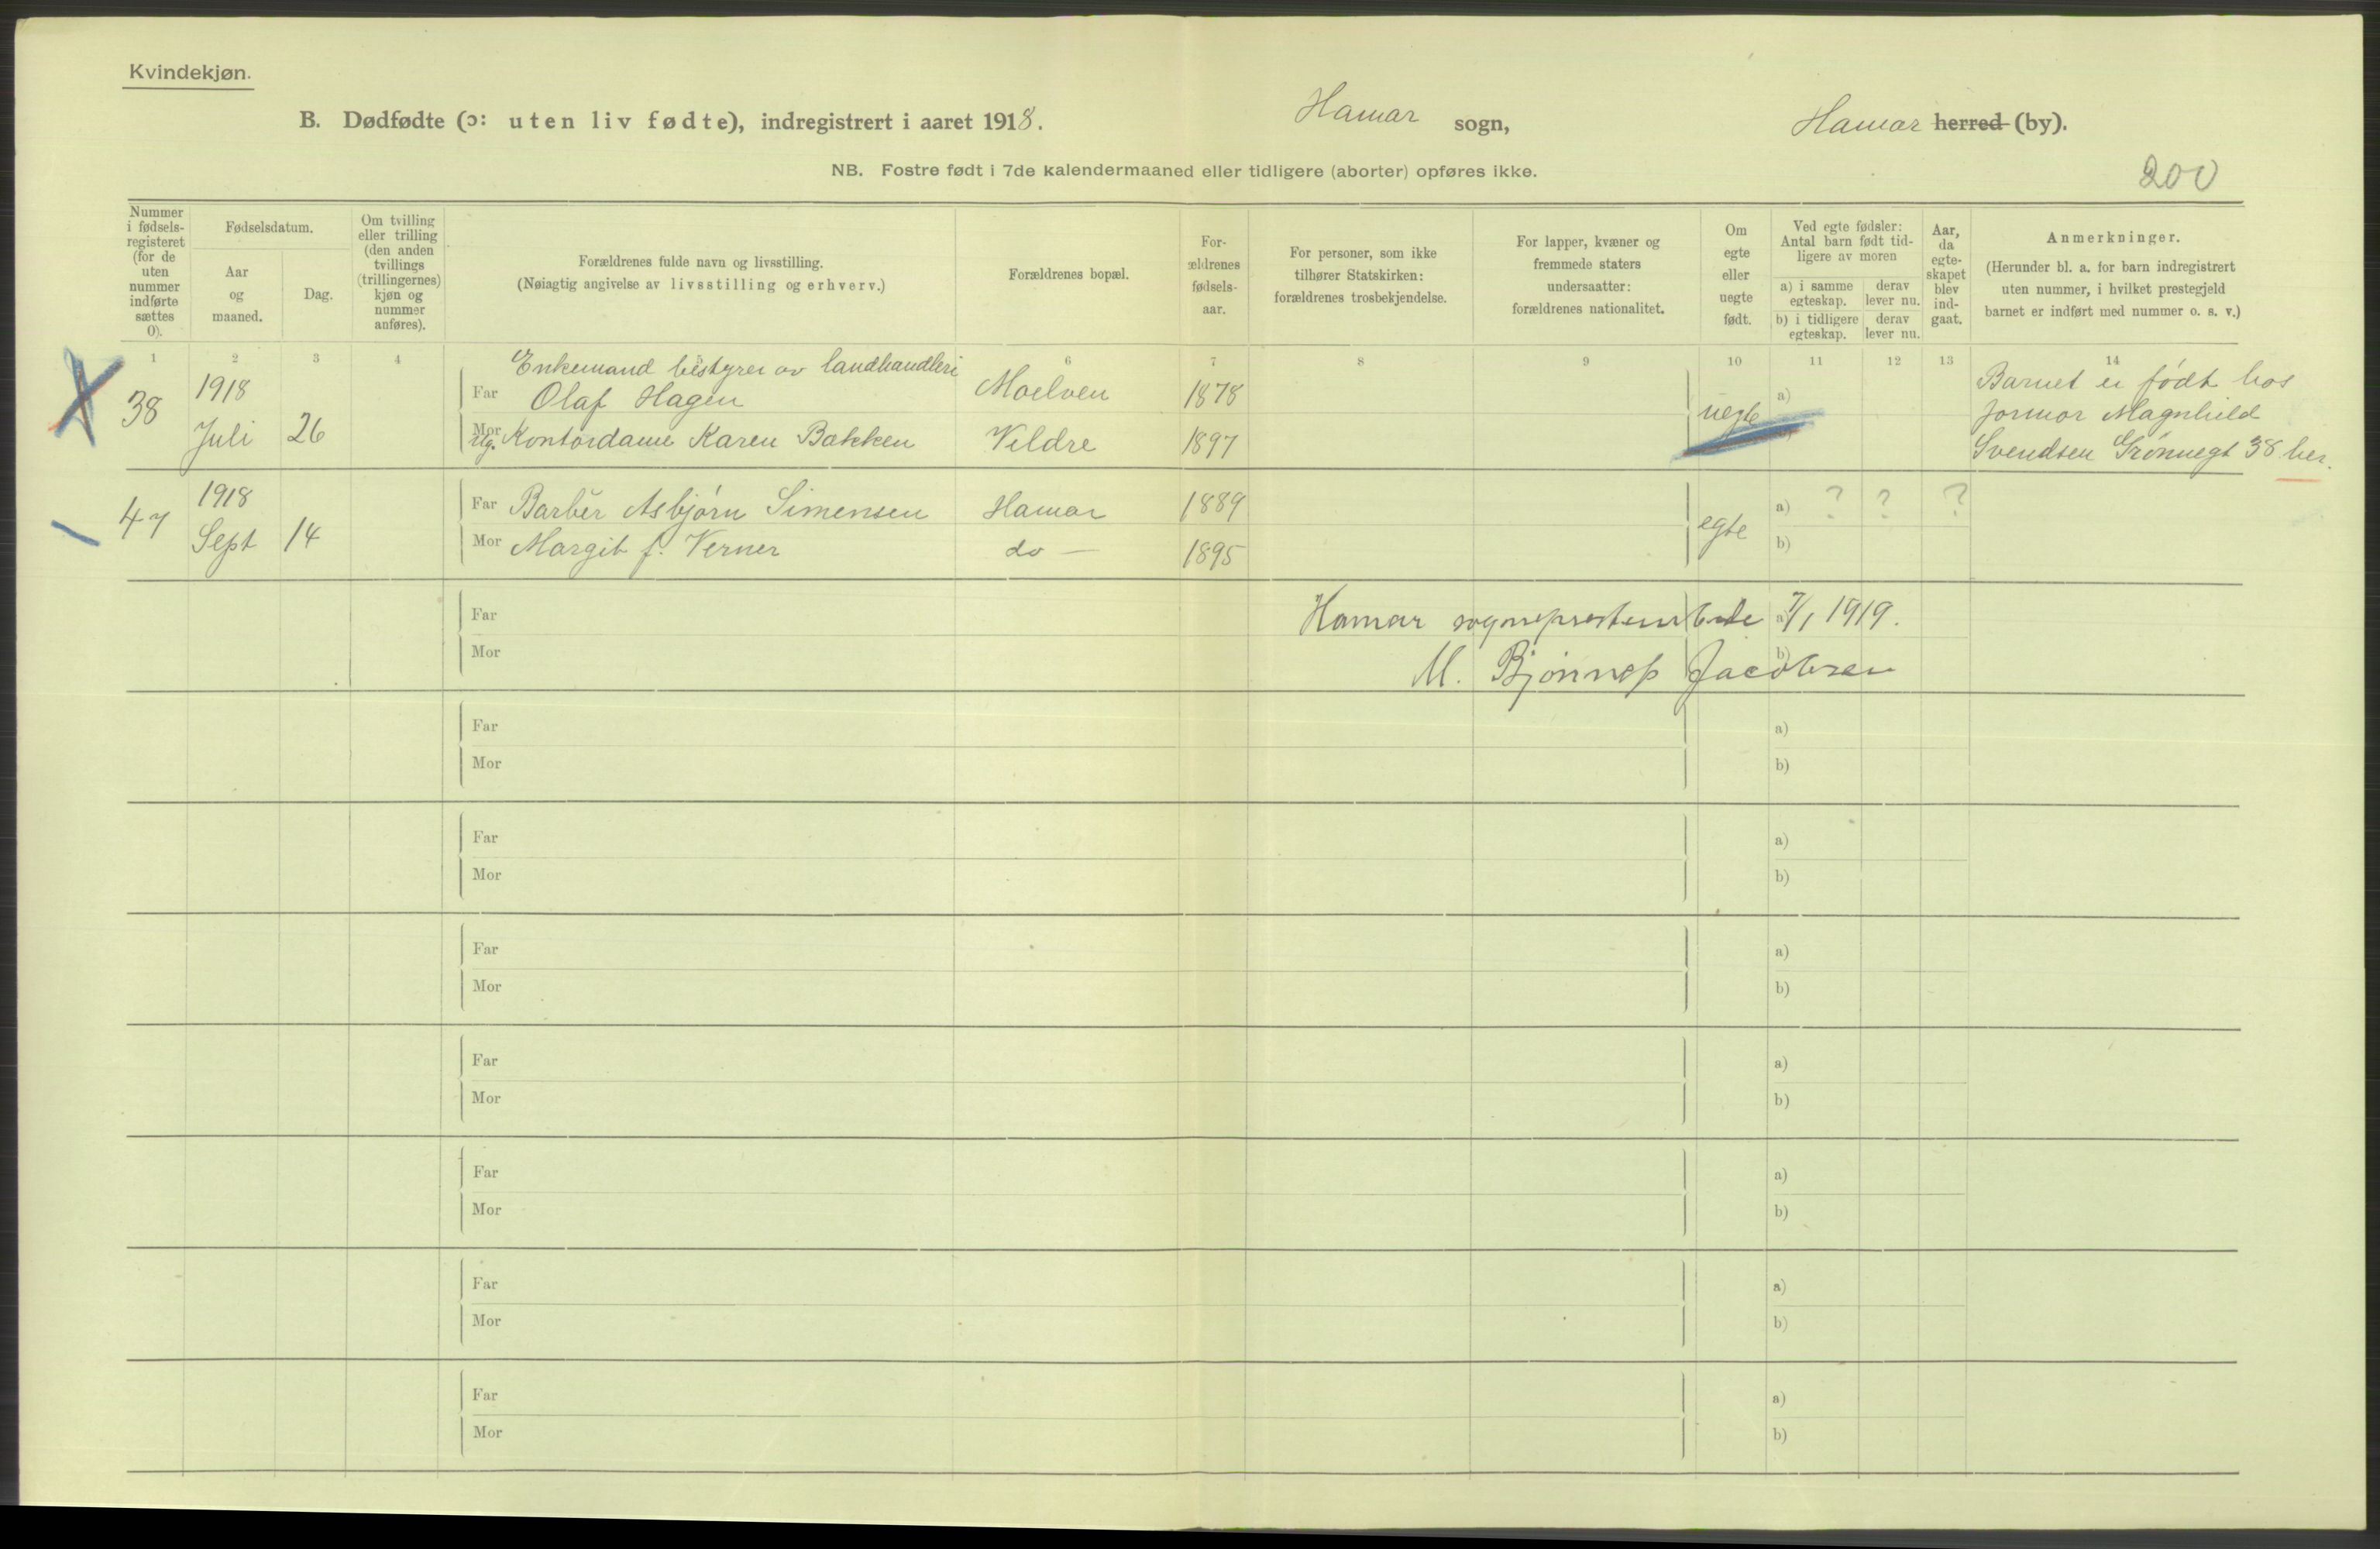 Kvindekjøn.
B. Dødfødte (ɔ: uten liv fødte), indregistrert i aaret 1918. Hamar sogn, Hamar herred (by).
NB. Fostre født i 7de kalendermaaned eller tidligere (aborter) opføres ikke.
200
Nummer i fødsels-registeret (for de uten nummer indførte sættes 0).
Fødselsdatum.
Aar og maaned.
Dag.
Om tvilling eller trilling (den anden tvillings (trillingernes) kjøn og nummer anføres).
Forældrenes fulde navn og livsstilling.
(Nøiagtig angivelse av livsstilling og erhverv.)
Forældrenes bopæl.
For-ældrenes fødsels-aar.
For personer, som ikke tilhører Statskirken: forældrenes trosbekjendelse.
For lapper, kvæner og fremmede staters undersaatter: forældrenes nationalitet.
Om egte eller uegte født.
Ved egte fødsler: Antal barn født tid-ligere av moren
a) i samme egteskap. derav lever nu.
b) i tidligere egteskap. derav lever nu.
Aar, da egte-skapet blev ind-gaat.
Anmerkninger.
(Herunder bl. a. for barn indregistrert uten nummer, i hvilket prestegjeld barnet er indført med nummer o. s. v.)
1 2 3 4 6 7 8 9 10 11 12 13 14
Enkemand bestyrer av landhandleri
38 1918 Far Olaf Hagen Moelven 1878 uegte a) Barnet er født hos
Juli 26 Mor Ug. Kontordame Karen Bakken Veldre 1897 jormor Magnhild
Svendsen Grønnegt 38 her.
47 1918 Far Barbér Asbjørn Simensen Hamar 1889 egte a) ? ? ?
Sept 14 Mor Margit f. Verner do — 1895 b)
Far Hamar sogneprestembede a) 7/1 1919.
Mor M. Bjønnes Jacobsen b)
Far a)
Mor b)
Far a)
Mor b)
Far a)
Mor b)
Far a)
Mor b)
Far a)
Mor b)
Far a)
Mor b)
Far a)
Mor b)